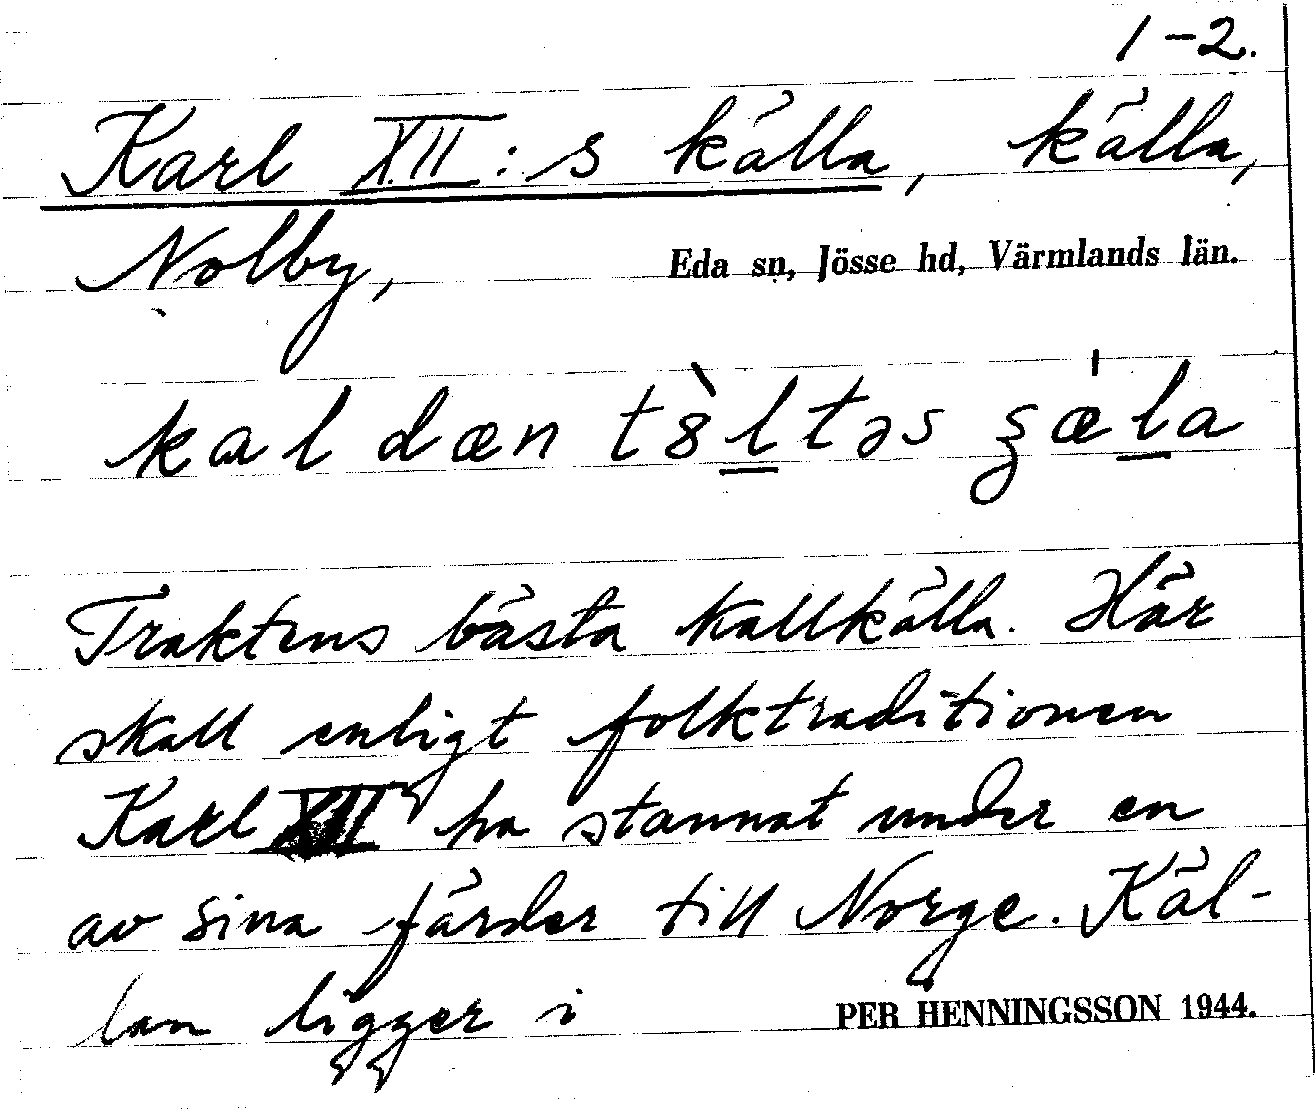 1-2.
Karl XII:s källa, källa,
Nolby,
Eda sn, Jösse hd, Värmlands län.
kal dæn t8̀ltəs ʂæ̍la
Traktens bästa kallkälla. Här
skall enligt folktraditionen
Karl XII ha stannat under en
av sina färder till Norge. Käl-
lan ligger i
PER HENNINGSSON 1944.